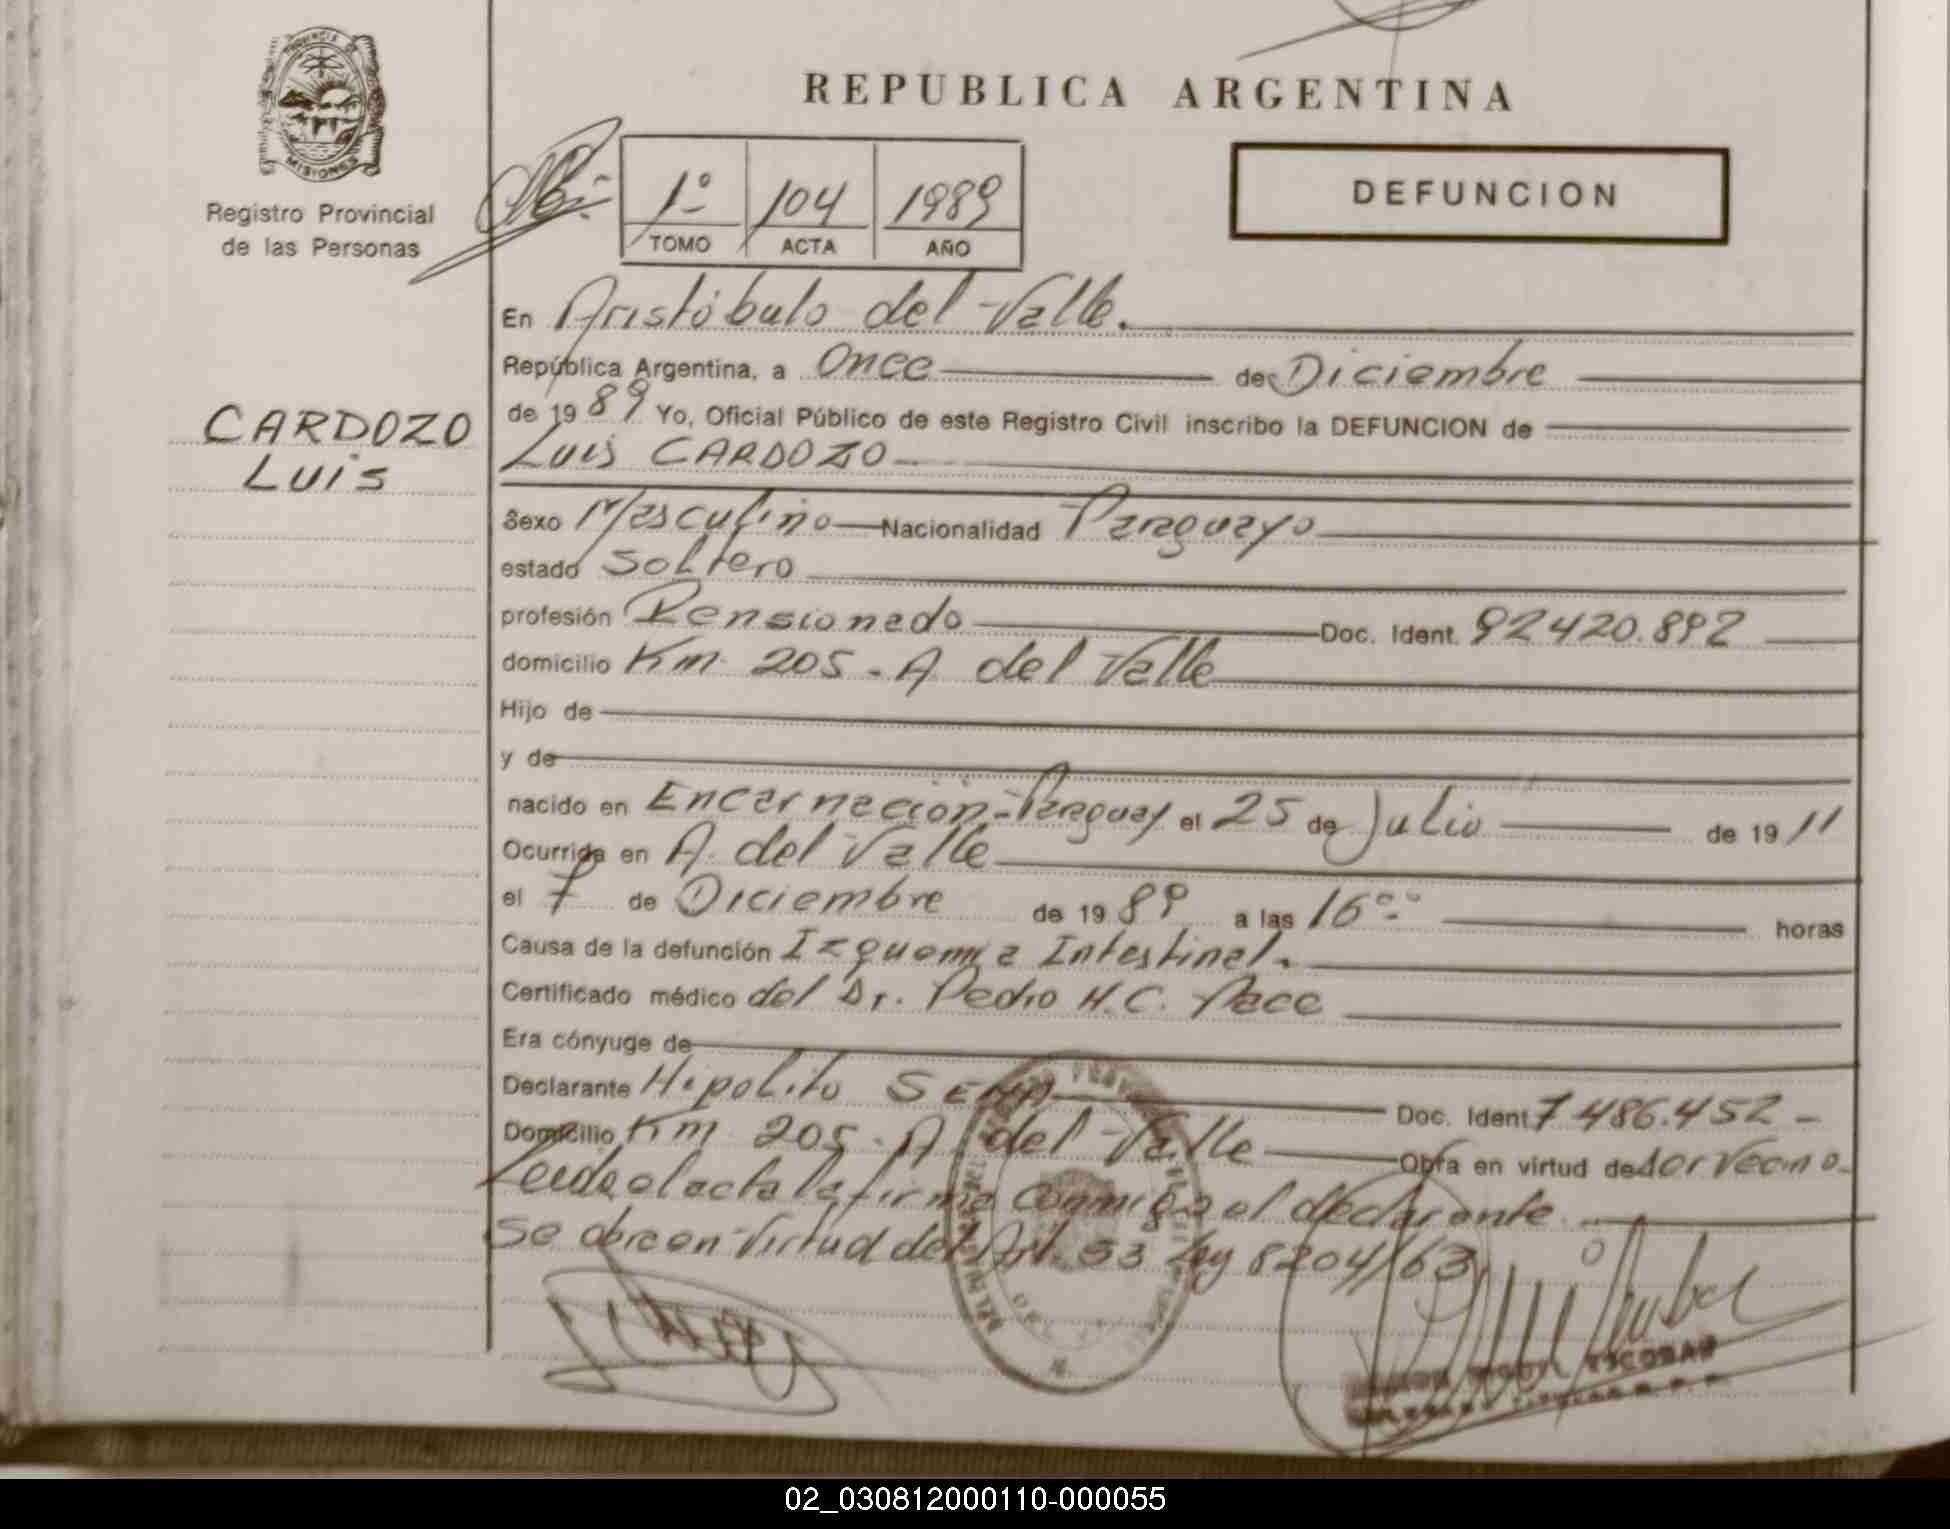 PROVINCIA DE
MISIONES
Registro Provincial
de las Personas
CARDOZO
Luis
REPUBLICA ARGENTINA
1º 104 1989
TOMO ACTA AÑO
DEFUNCION
En Aristóbulo del Valle.
República Argentina, a Once de Diciembre
de 1989 Yo, Oficial Público de este Registro Civil inscribo la DEFUNCION de
Luis CARDOZO
Sexo Masculino Nacionalidad Paraguayo
estado Soltero
profesión Pensionado Doc. Ident. 92420.892
domicilio Km. 205 - A del Valle
Hijo de
y de
nacido en Encarnación-Paraguay el 25 de Julio de 1911
Ocurrida en A. del Valle
el 7 de Diciembre de 1989 a las 16 horas
Causa de la defunción Izquemia Intestinal.
Certificado médico del Dr. Pedro H.C. Pace
Era cónyuge de
Declarante Hipolito SENA Doc. Ident 7.486.452 -
Domicilio Km 205 - A. del Valle Obra en virtud de ser Vecino.
Leida el acta la firma Conmigo el declarante
Se obra en Virtud del Art. 53 Ley 8204/63
ESCOBAR
02_030812000110-000055